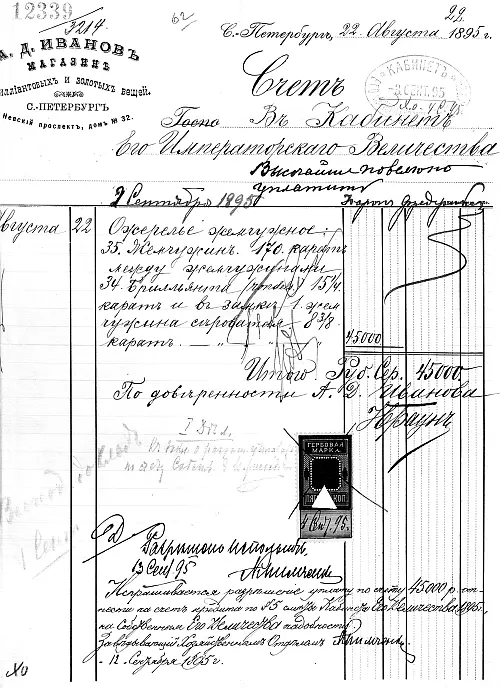 12339
3214.
62
22.
А. Д. ИВАНОВЪ
МАГАЗИНЪ
БРИЛЛІАНТОВЫХЪ И ЗОЛОТЫХЪ ВЕЩЕЙ.
С.-ПЕТЕРБУРГЪ
Невскій проспектъ, домъ № 32.
С.-Петербургъ, 22 Августа 1895 г.
Счетъ
КАБИНЕТЪ
СЕНТ. 95
Въ Кабинетъ
Его Императорскаго Величества
Высочайше повелено
уплатить
9 Сентября 1895
Августа 22 Ожерелье жемчужное:
35. Жемчужин. 170. каратъ
между жемчужинами
34. Брилльянта 15 1/4
каратъ и въ замкѣ 1. жем
чужина 8 3/8
каратъ. 45000
Итого Руб. Сер. 45000.
По довѣренности А. Д. Иванова
ГЕРБОВАЯ
МАРКА
ПЯТЬ КОП.
4 Сен. 95.
Разрѣшено исполнить
13 Сент 95
Испрашивается разрѣшеніе уплату по счету 45000 р. от
нести на счетъ кредита по § 5 смѣты Кабинета Его Величества 1895 г.
на Собственныя Его Величества надобности
Завѣдывающій Хозяйственнымъ Отдѣломъ
12 Сентября 1895 г.